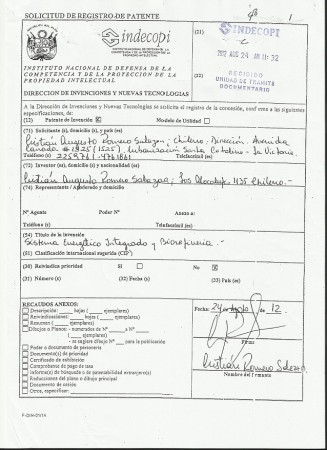 SOLICITUD DE REGISTRO DE PATENTE
1
(21)
INDECOPI
2012 AGO 24 AM 11:32
RECIBIDO
UNIDAD DE TRAMITE
DOCUMENTARIO
indecopi
INSTITUTO NACIONAL DE DEFENSA DE LA
COMPETENCIA Y DE LA PROTECCION DE LA
PROPIEDAD INTELECTUAL
DIRECCION DE INVENCIONES Y NUEVAS TECNOLOGIAS
A la Dirección de Invenciones y Nuevas Tecnologías se solicita el registro de la concesión, conforme a las siguientes
especificaciones, de:
(12) Patente de Invención
Modelo de Utilidad
(71) Solicitante(s), domicilio(s), y país (es)
Cristián Augusto Romero Salazar; Chileno. Dirección: Avenida
Canadá # 1525 (1525) Urbanización Santa Catalina - La Victoria.
Teléfono (s) Telefacsímil (es)
(72) Inventor (es), domicilio (s) y nacionalidad (es)
Cristián Augusto Romero Salazar; 435 Chileno.-
(74) Representante / Apoderado y domicilio
Nº Agente Poder Nº Anexo a:
Teléfono (s) Telefacsímil (es)
(54) Título de la invención
Sistema Energético Integrado y Biorefinería.-
(51) Clasificación internacional sugerida (CIP)
(30) Reivindica prioridad SI No
(31) Número (s) (32) Fecha (s) (33) País (es)
RECAUDOS ANEXOS:
Descripción: hojas ( ejemplares)
Reivindicaciones: hojas ( ejemplares)
Resumen ( ejemplares)
Dibujos o Planos: - numerados de Nº a Nº
- en ( ejemplares)
- se sugiere dibujo Nº para la publicación
Poder o documento de personería
Documento(s) de prioridad
Certificado de exhibición
Comprobante de pago de tasa
Informe(s) de búsqueda o de patentabilidad extranjero(s)
Reducciones del plano o dibujo principal
Documento de cesión
Otros, especificar:
Fecha: 24 de Agosto de 12.
Firma
Cristián Romero Salazar
Nombre del Firmante